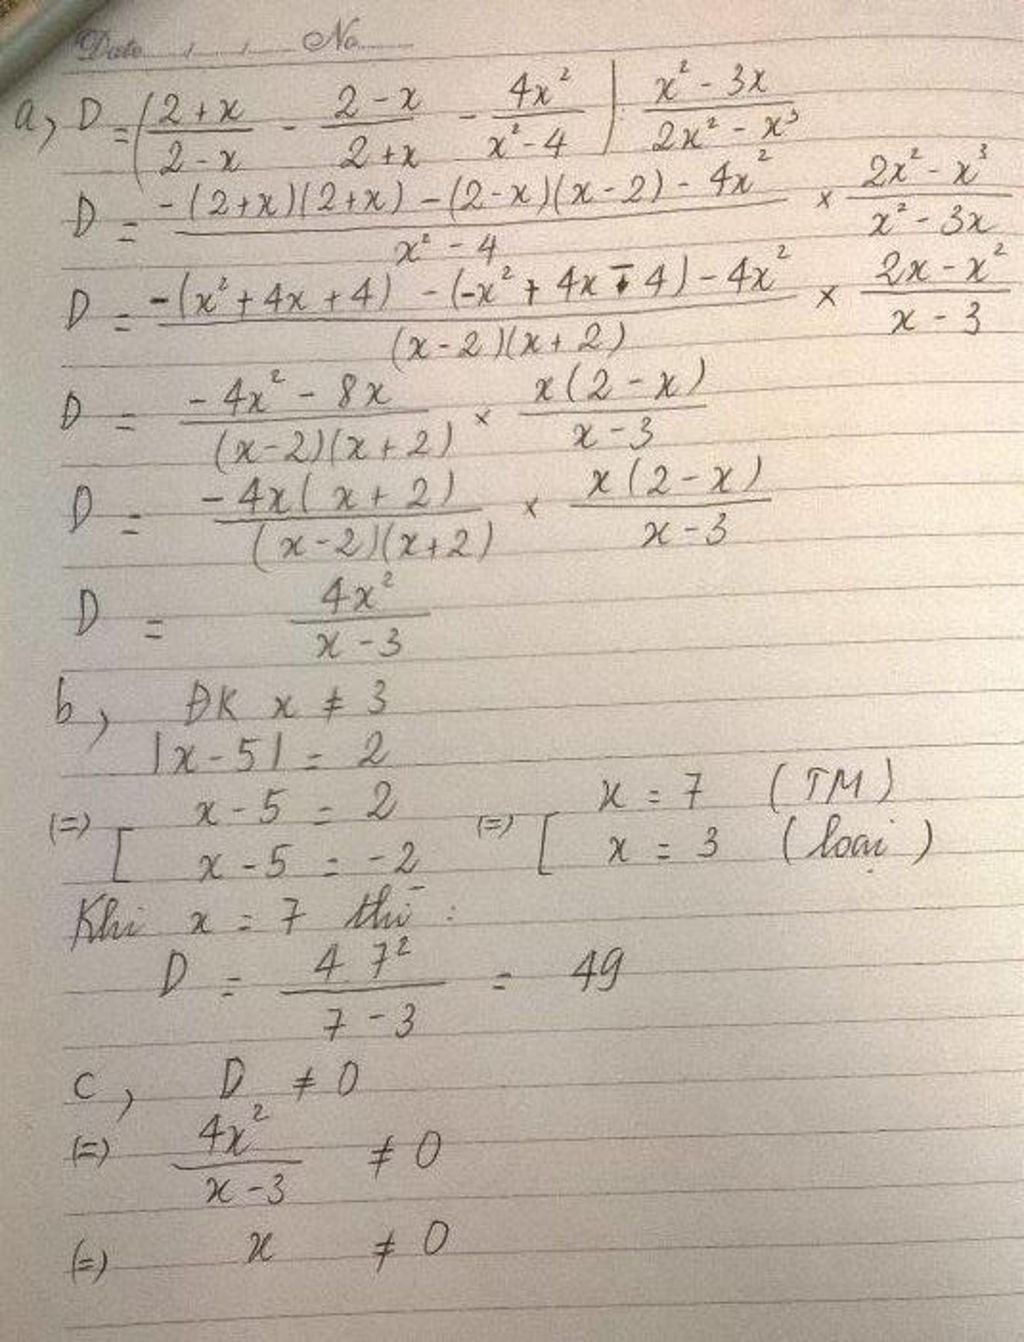 Date / / No
a, D = (2+x/2-x - 2-x/2+x - 4x²/x²-4) : x²-3x/2x²-x³
D = -(2+x)(2+x) - (2-x)(x-2) - 4x²/x²-4 × 2x²-x³/x²-3x
D = -(x²+4x+4) - (-x²+4x-4) - 4x²/(x-2)(x+2) × 2x-x²/x-3
D = -4x²-8x/(x-2)(x+2) × x(2-x)/x-3
D = -4x(x+2)/(x-2)(x+2) × x(2-x)/x-3
D = 4x²/x-3
b, ĐK x ≠ 3
|x-5| = 2
(=) [ x-5 = 2 (=) [ x = 7 (TM)
x-5 = -2 x = 3 (loại)
Khi x = 7 thì :
D = 4 7²/7-3 = 49
c, D ≠ 0
(=) 4x²/x-3 ≠ 0
(=) x ≠ 0